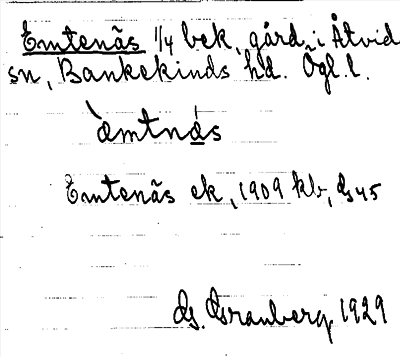 Emtenäs 1/4 bek, gård i Åtvid
sn, Bankekinds hd. Ögl. l.
`æmtná̱s
Emtenäs ek, 1909 kb, ds 45
G. Granberg 1929